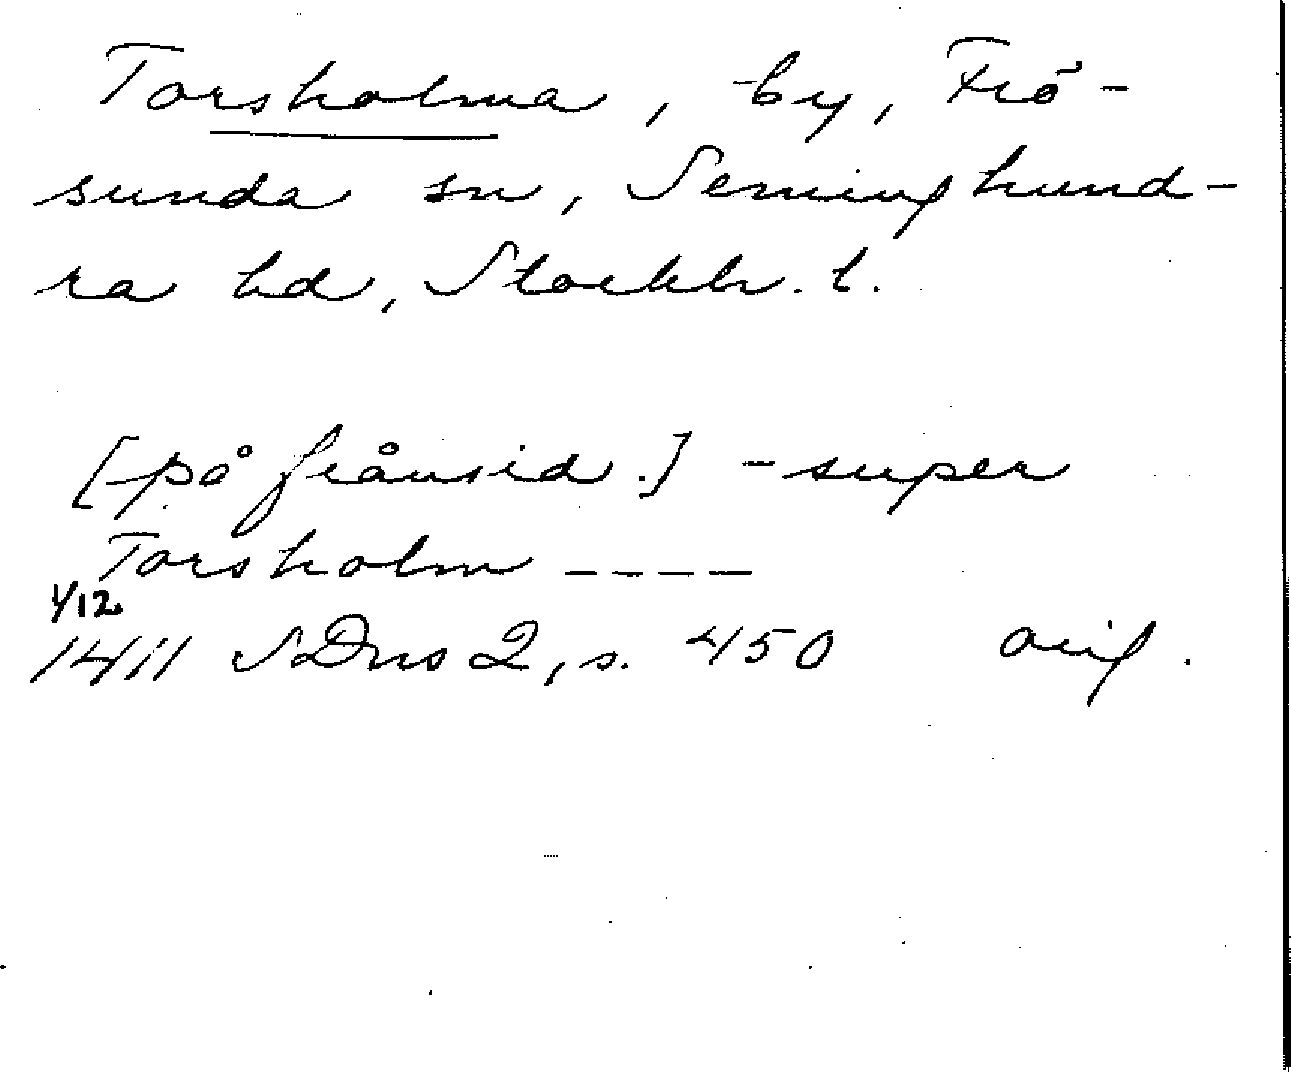 Torsholma, by, Frö-
sunda sn, Seminghund-
ra hd, Stockh. l.
[på frånsid.] - super
Torsholm ----
1/12
1411 SDns 2, s. 450 orig.